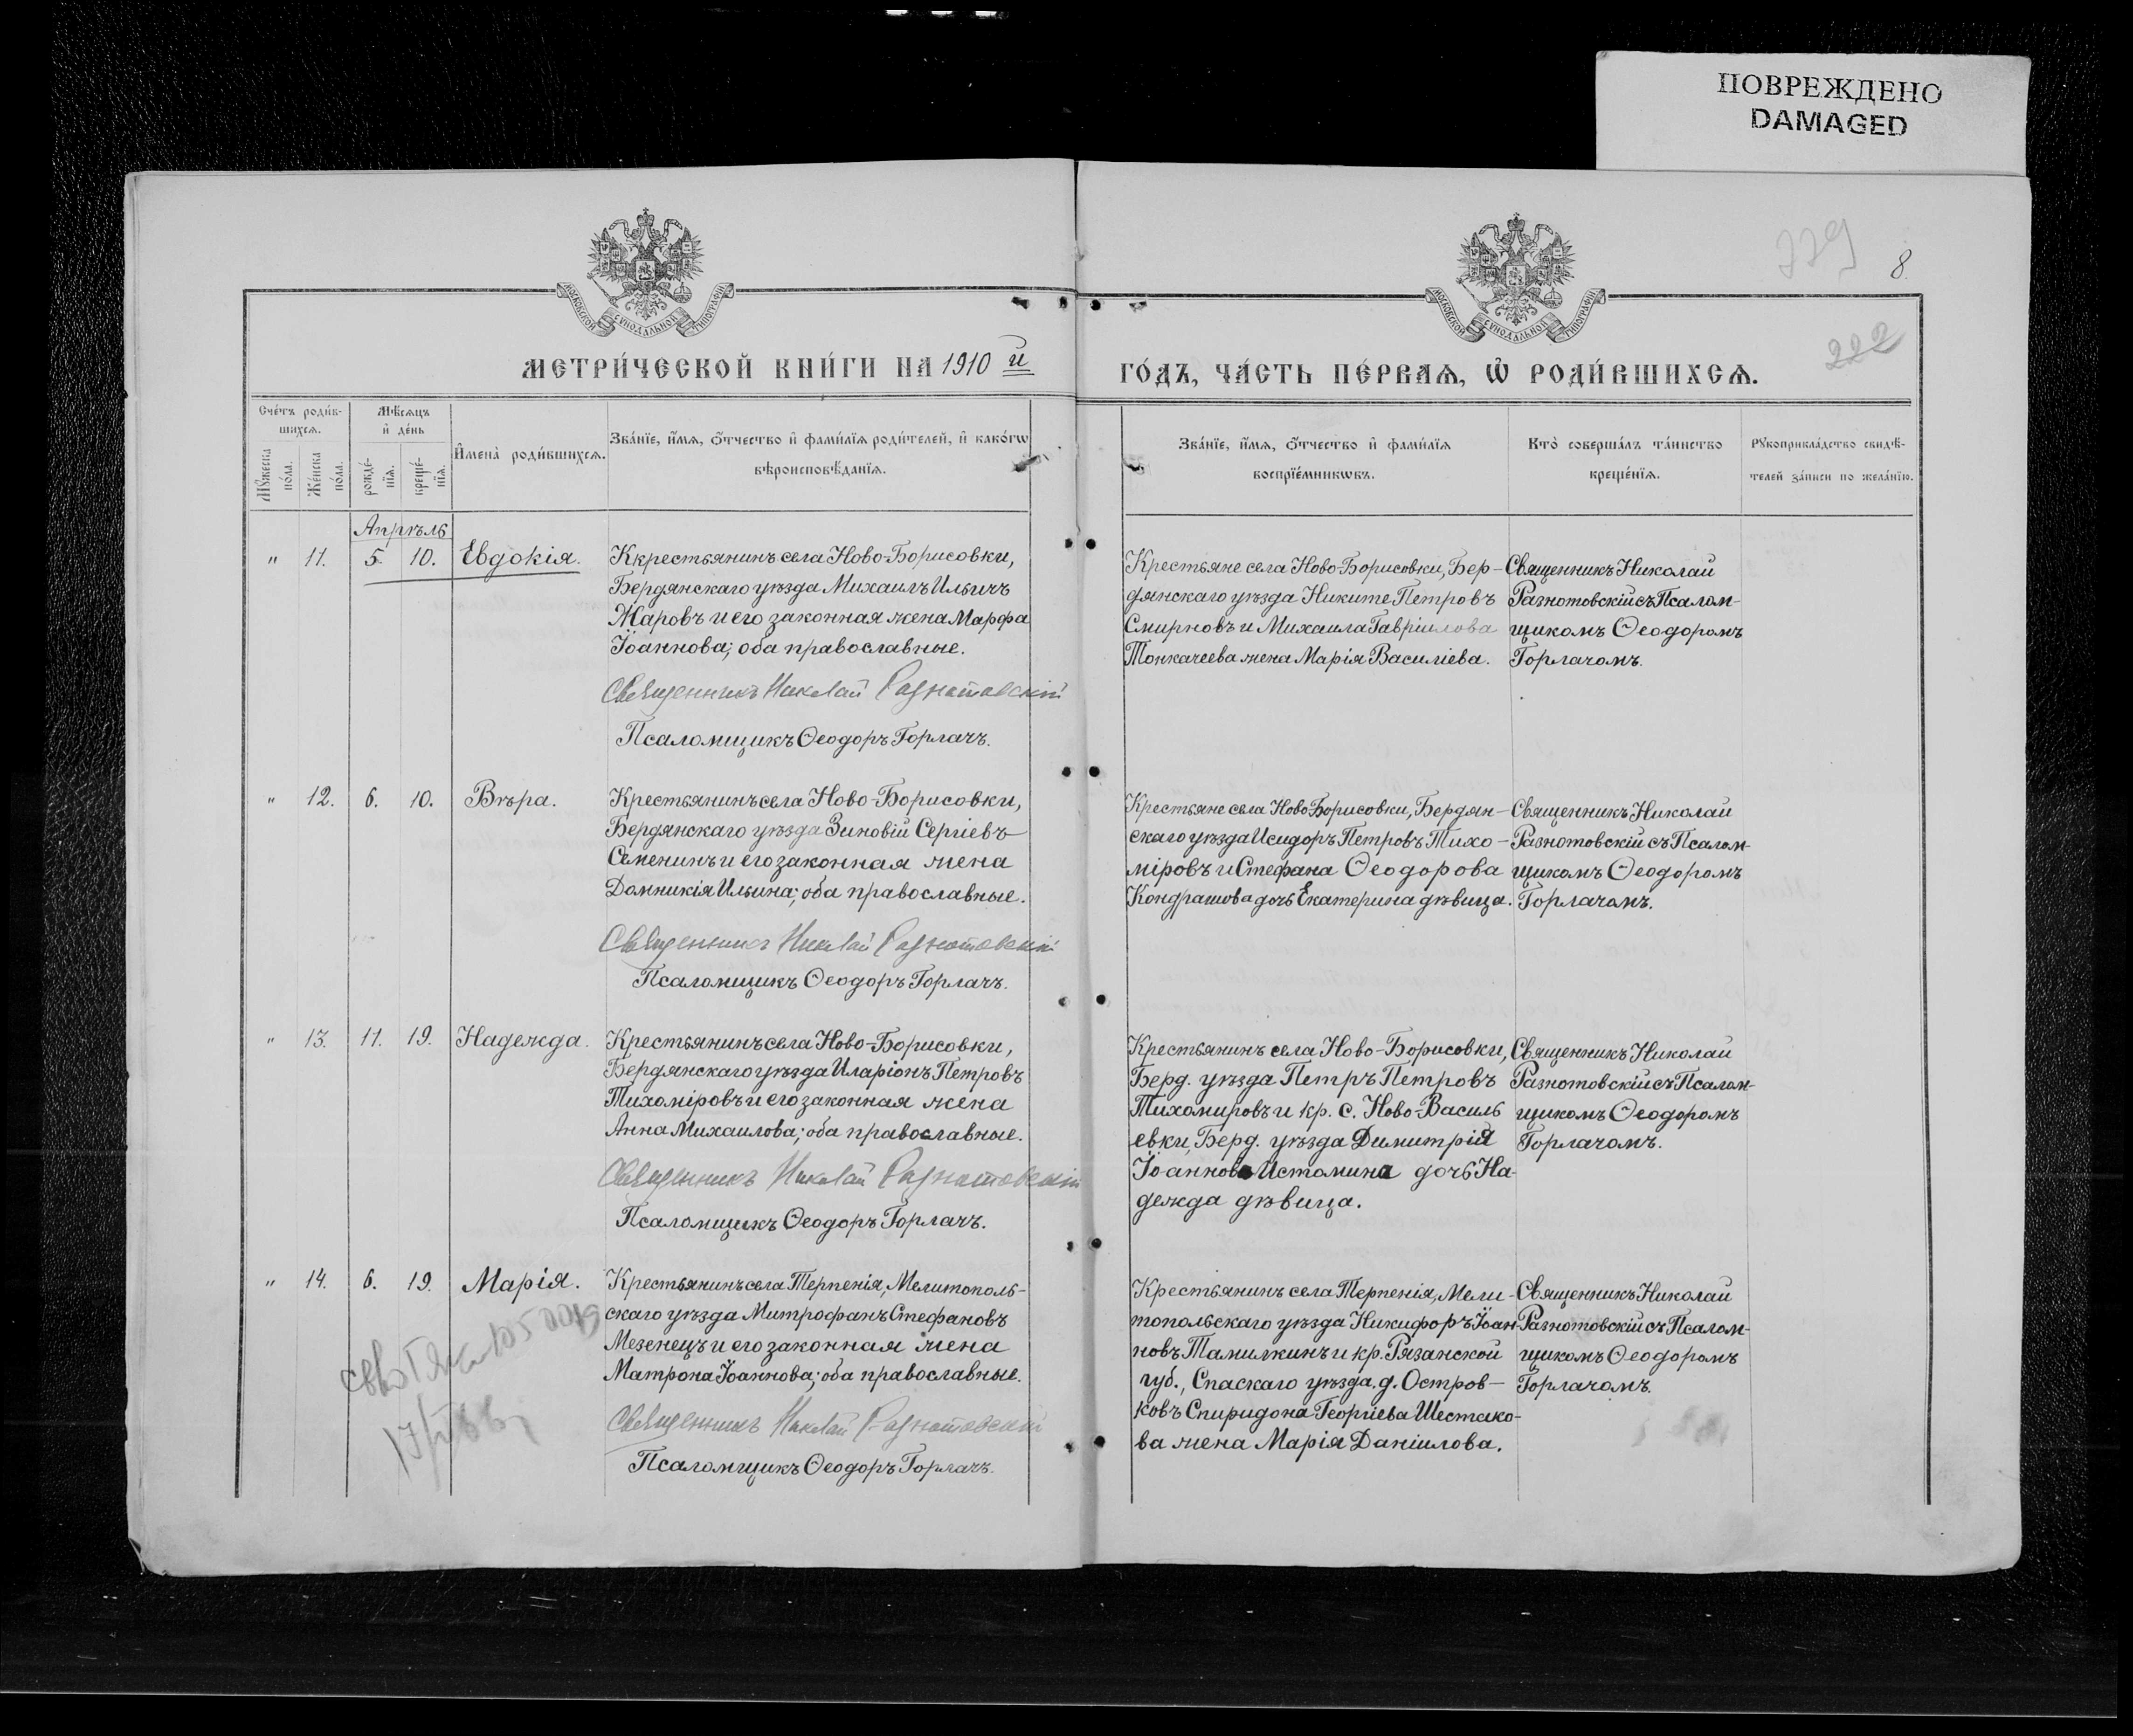 ПОВРЕЖДЕНО
DAMAGED
8.
222
МОСКОВСКОЙ СѴНОДАЛЬНОЙ ТИПОГРАФІИ
МОСКОВСКОЙ СѴНОДАЛЬНОЙ ТИПОГРАФІИ
МЕТРИ́ЧЕСКОЙ КНИ́ГИ НА 1910 й
ГО́ДЪ, ЧА́СТЬ ПЕ́РВАѦ, Ѡ РОДИ́ВШИХСѦ.
Сче́тъ роди́в-
шихсѧ.
Мꙋ́жеска по́ла.
Же́нска по́ла.
Мѣ́сѧцъ
и҆ де́нь
рожде́-
нїѧ.
креще́-
нїѧ.
И҆мена̀ роди́вшихсѧ.
Зва́нїе, и҆́мѧ, ѻ҆́тчество и҆ фами́лїѧ роди́телей, и҆ како́гѡ
вѣроисповѣ́данїѧ.
Зва́нїе, и҆́мѧ, ѻ҆́тчество и҆ фами́лїѧ
воспрїе́мникѡвъ.
Кто̀ соверша́лъ та́инство
креще́нїѧ.
Рꙋкоприкла́дство свидѣ́-
телей за́писи по жела́нїю.
Апрѣль
" 11. 5. 10. Евдокія.
Ккрестьянинъ села Ново-Борисовки,
Бердянскаго уѣзда Михаилъ Ильичъ
Жаровъ и его законная жена Марфа
Іоаннова; оба православные.
Священникъ Николай Разнотовскій
Псаломщикъ Ѳеодоръ Горлачъ.
Крестьяне села Ново-Борисовки, Бер-
дянскаго уѣзда Никите Петровъ
Смирновъ и Михаила Гавріилова
Тонкачеева жена Марія Василіева.
Священникъ Николай
Разнотовскій съ Псалом-
щикомъ Ѳеодоромъ
Горлачомъ.
" 12. 6. 10. Вѣра.
Крестьянинъ села Ново-Борисовки,
Бердянскаго уѣзда Зиновій Сергіевъ
Семенинъ и его законная жена
Домникія Ильина; оба православные.
Священникъ Николай Разнотовскій
Псаломщикъ Ѳеодоръ Горлачъ.
Крестьяне села Ново Борисовки, Бердян-
скаго уѣзда Исидоръ Петровъ Тихо-
міровъ и Стефана Ѳеодорова
Кондрашова дочь Екатерина дѣвица.
Священникъ Николай
Разнотовскій съ Псалом-
щикомъ Ѳеодоромъ
Горлачомъ.
" 13. 11. 19. Надежда.
Крестьянинъ села Ново-Борисовки,
Бердянскаго уѣзда Иларіонъ Петровъ
Тихоміровъ и его законная жена
Анна Михаилова; оба православные.
Священникъ Николай Разнотовскій
Псаломщикъ Ѳеодоръ Горлачъ.
Крестьянинъ села Ново-Борисовки,
Берд. уѣзда Петръ Петровъ
Тихомировъ и кр. с. Ново-Василь
евки, Берд. уѣзда Димитрія
Іоаннова Истомина дочь На-
дежда дѣвица.
Священникъ Николай
Разнотовскій съ Псалом-
щикомъ Ѳеодоромъ
Горлачомъ.
" 14. 6. 19. Марія.
Крестьянинъ села Терпенія, Мелитополь-
скаго уѣзда Митрофанъ Стефановъ
Мезенецъ и его законная жена
Матрона Іоаннова; оба православные.
Священникъ Николай Разнотовскій
Псаломщикъ Ѳеодоръ Горлачъ.
Крестьянинъ села Терпенія, Мели-
топольскаго уѣзда Никифоръ Іоан-
новъ Тамилкинъ и кр. Рязанской
губ., Спаскаго уѣзда, д. Остров-
ковъ Спиридона Георгіева Шестако-
ва жена Марія Даніилова.
Священникъ Николай
Разнотовскій съ Псалом-
щикомъ Ѳеодоромъ
Горлачомъ.